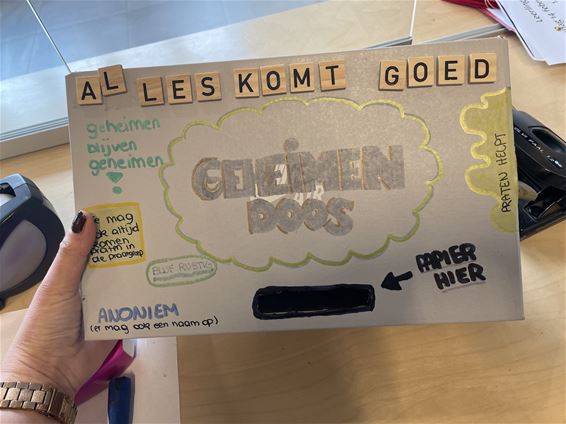 ALLES KOMT GOED
geheimen
blijven
geheimen
!
GEHEIMEN
DOOS
PRATEN HELPT
je mag
ook altijd
komen
praten in
de
BLIJF RUSTIG
PAPIER
HIER
ANONIEM
(er mag ook een naam op)